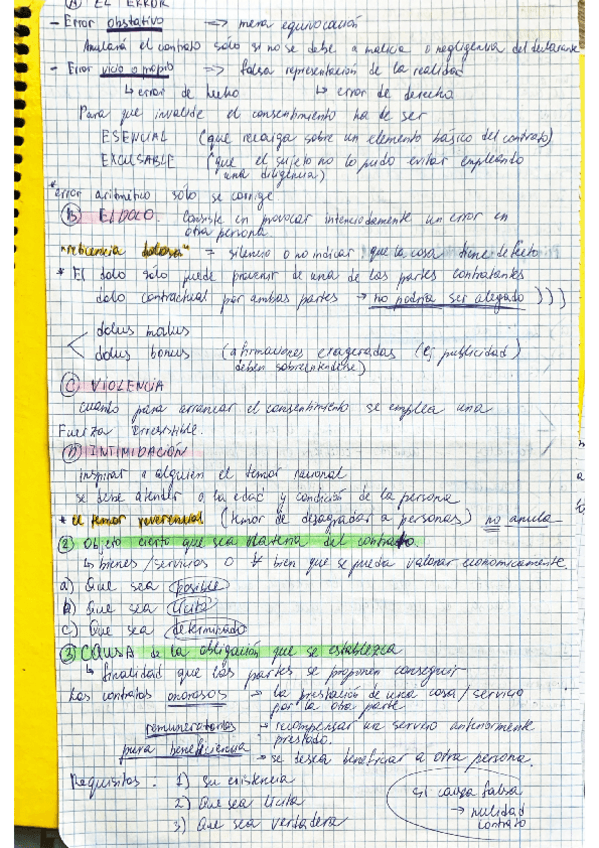 (A) EL ERROR
- Error obstativo => mera equivocación
Anulará el contrato sólo si no se debe a malicia o negligencia del declarante
- Error vicio o propio => falsa representación de la realidad
↳ error de hecho ↳ error de derecho
Para que invalide el consentimiento ha de ser
ESENCIAL (que recaiga sobre un elemento básico del contrato)
EXCUSABLE (que el sujeto no lo pudo evitar empleando
una diligencia)
*error aritmético sólo se corrige
(B) EL DOLO. Consiste en provocar intencionadamente un error en
otra persona.
"reticencia dolosa" = silencio o no indicar que la cosa tiene defecto
* El dolo sólo puede provenir de una de las partes contratantes
dolo contractual por ambas partes → no podría ser alegado )))
dolus malus
dolus bonus (afirmaciones exageradas (ej publicidad)
deben sobreentenderse)
(C) VIOLENCIA
cuando para arrancar el consentimiento se emplea una
Fuerza irresistible.
(D) INTIMIDACIÓN
inspirar a alguien el temor racional
se debe atender a la edad y condición de la persona
* el temor reverencial (temor de desagradar a personas) no anula
(2) Objeto cierto que sea materia del contrato.
↳ bienes/servicios o bien que se pueda valorar económicamente.
a) Que sea posible
b) Que sea lícita
c) Que sea determinado
(3) CAUSA de la obligación que se establezca
↳ finalidad que las partes se proponen conseguir
Los contratos onerosos → la prestación de una cosa/servicio
por la otra parte
remuneratorios → recompensar un servicio anteriormente
prestado.
pura beneficencia → se desea beneficiar a otra persona.
Requisitos. 1) Su existencia
2) Que sea lícita
3) Que sea verdadera
si causa falsa
→ nulidad
contrato